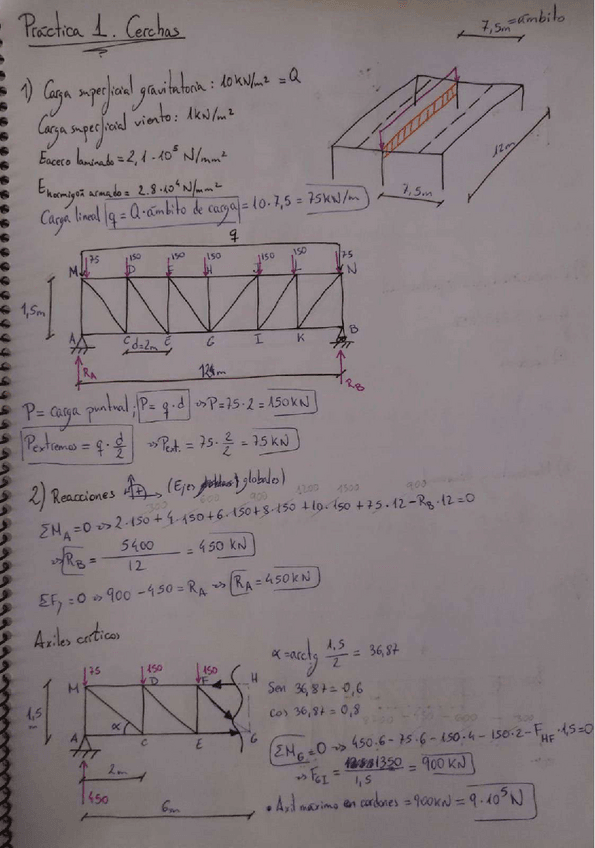 Práctica 1. Cerchas
7,5m = ámbito
1) Carga superficial gravitatoria: 10KN/m² = Q
Carga superficial viento: 1KN/m²
E acero laminado = 2,1·10⁵ N/mm²
E hormigón armado = 2.8·10⁴ N/mm²
Carga lineal q = Q·ámbito de carga = 10·7,5 = 75KN/m
12m
7,5m
q
75 150 150 150 150 150 75
M D F H J L N
1,5m
A C E G I K B
d=2m
R_A
12m
R_B
P = carga puntual; P = q·d => P = 75·2 = 150KN
P extremos = q·d/2 => P ext. = 75·2/2 = 75KN
2) Reacciones (Ejes globales)
300 600 900 1200 1500 900
ΣM_A=0 => 2·150+4·150+6·150+8·150+10·150+75·12-R_B·12=0
=> R_B = 5400/12 = 450KN
ΣF_y=0 => 900-450=R_A => R_A=450KN
Axiles críticos
75 150 150
M D F H
1,5
A α C E G
2m
450
6m
α=arctg 1,5/2 = 36,87
Sen 36,87=0,6
cos 36,87=0,8
ΣM_G=0 => 450·6-75·6-150·4-150·2-F_HF·1,5=0
=> F_GI = 1350/1,5 = 900KN
• Axil máximo en cordones = 900KN = 9·10⁵N